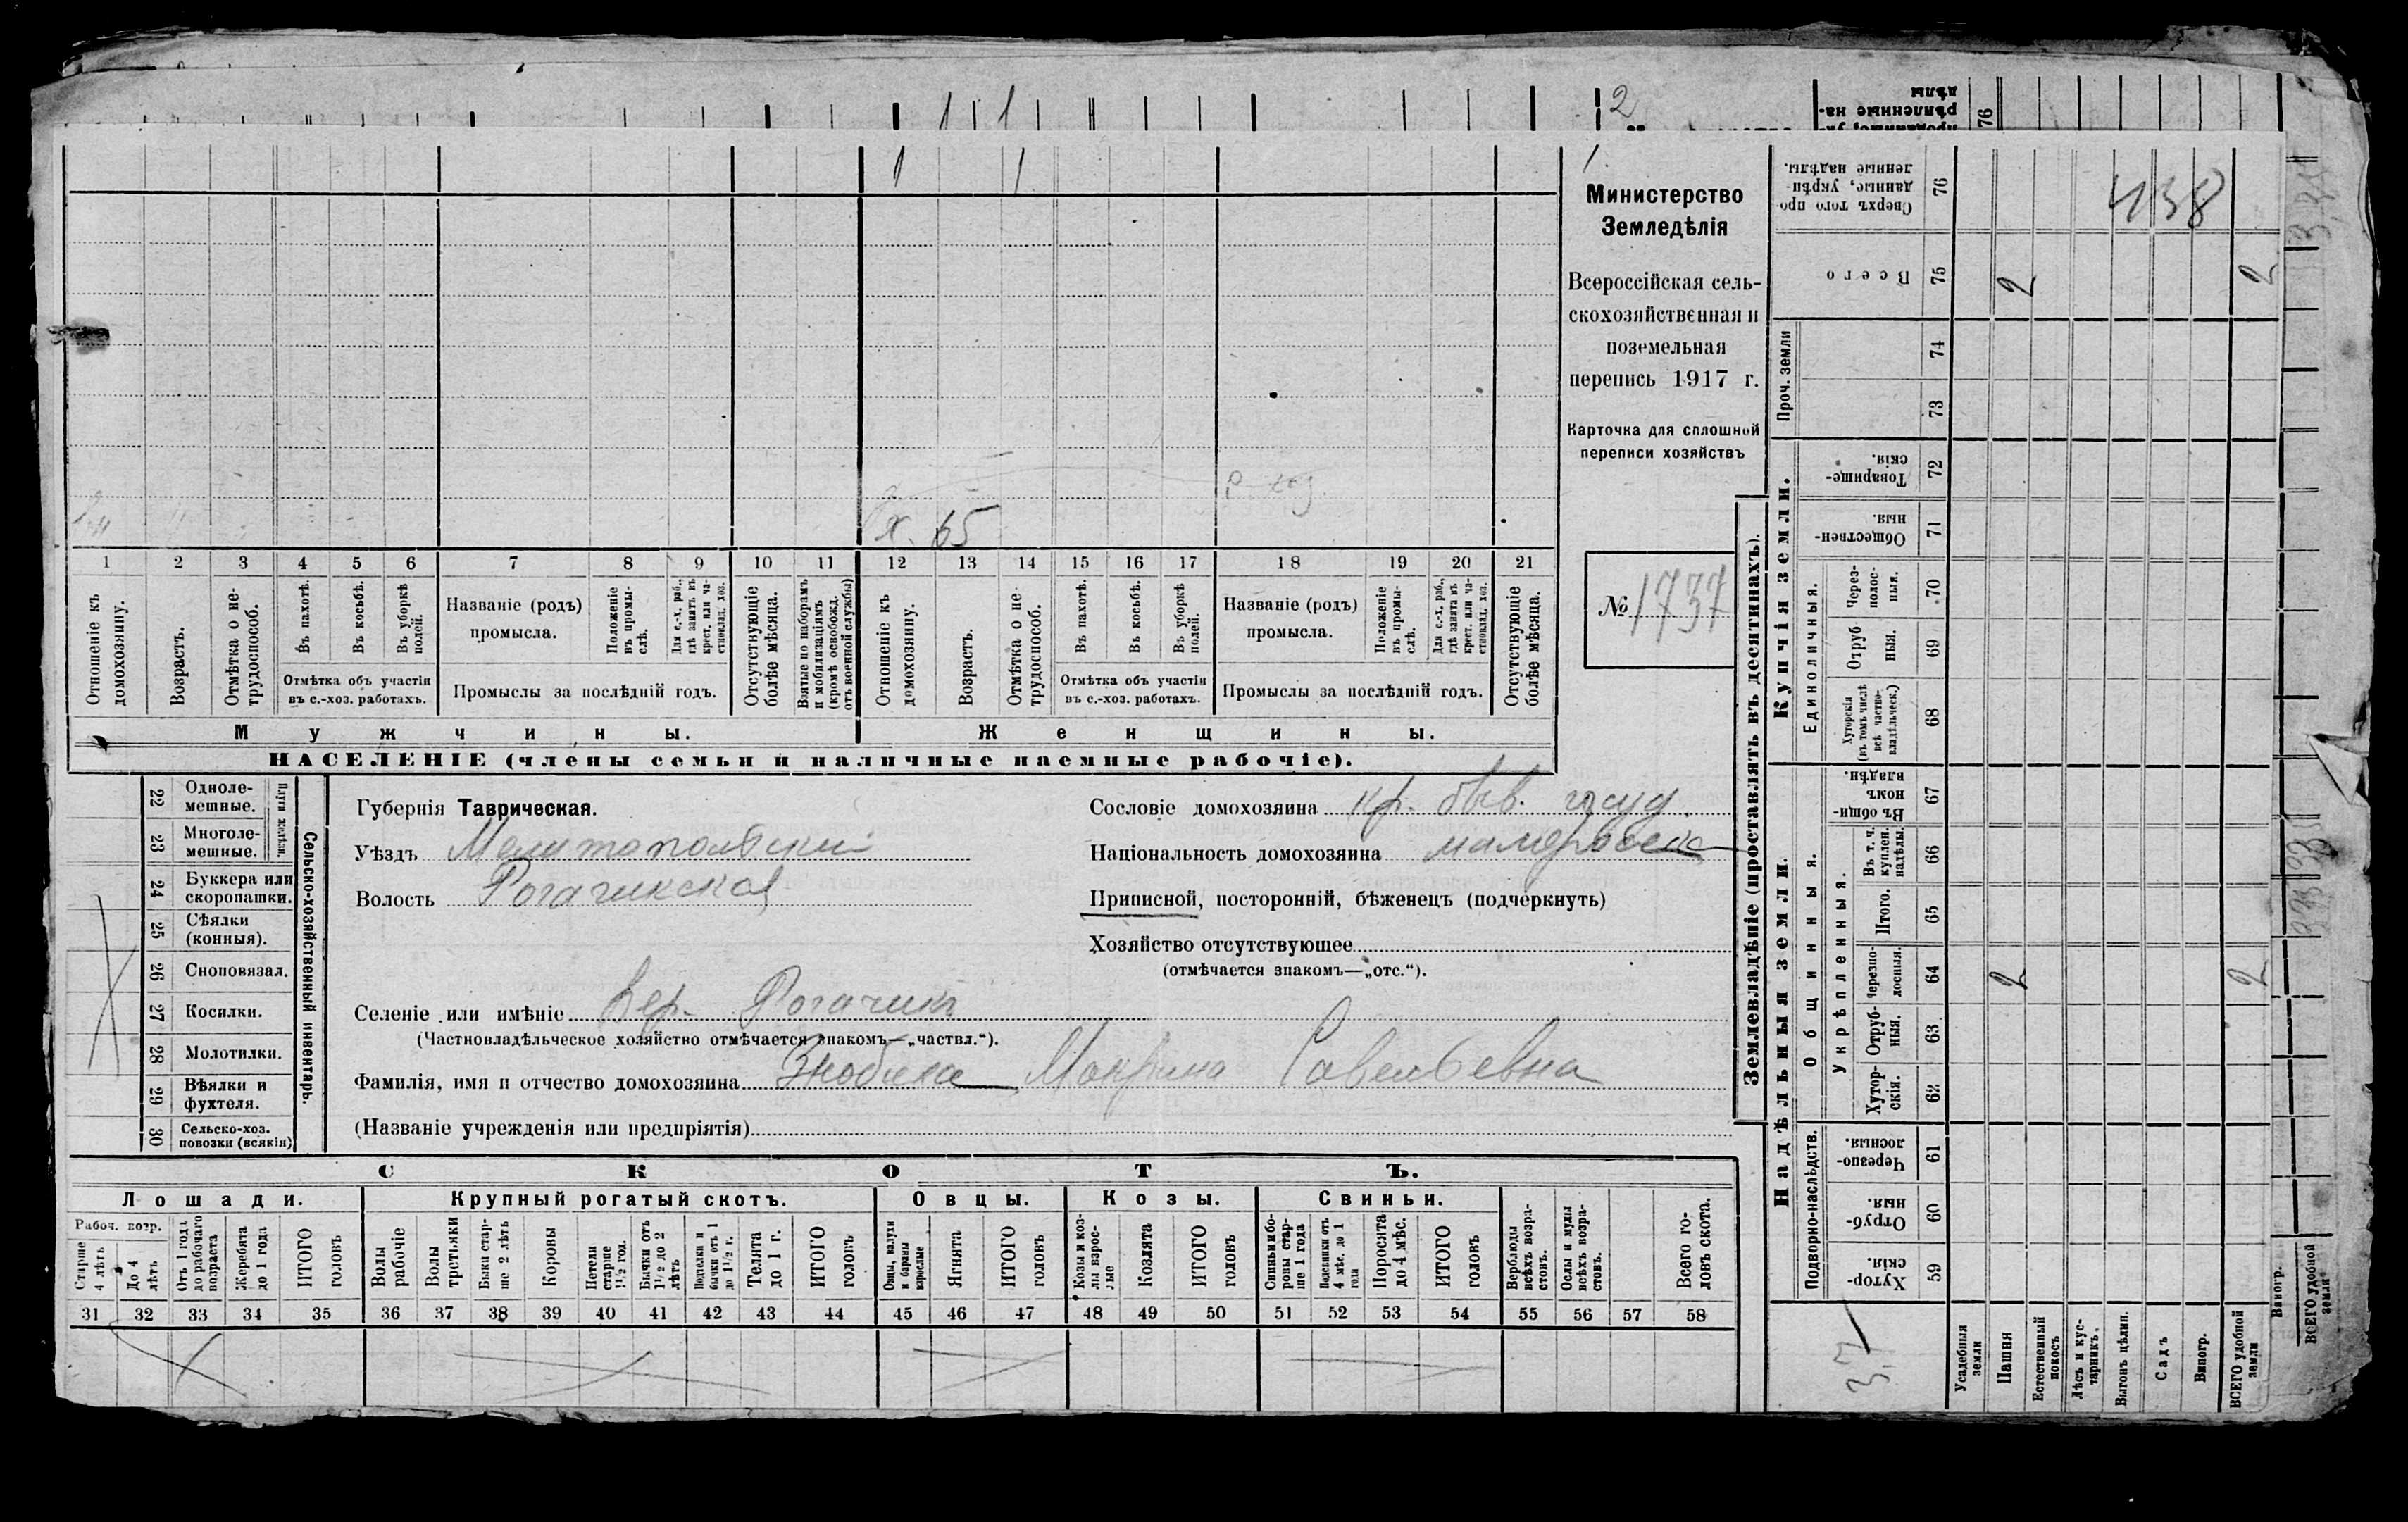 1 1 2
проданные, ук-
рѣпленные на-
дѣлы
76
1 1 1
х. 65
1 2 3 4 5 6 7 8 9 10 11 12 13 14 15 16 17 18 19 20 21
Отношеніе къ домохозяину.
Возрастъ.
Отмѣтка о не-трудоспособ.
Въ пахотѣ.
Въ косьбѣ.
Въ уборкѣ полей.
Отмѣтка объ участіи въ с.-хоз. работахъ.
Названіе (родъ) промысла.
Положеніе въ промы-слѣ.
Для с.-х. раб., гдѣ занятъ въ крест. или ча-стновлад. хоз.
Промыслы за послѣдній годъ.
Отсутствующіе болѣе мѣсяца.
Взятые по наборамъ и мобилизаціямъ (кромѣ освобожд. отъ военной службы)
Отношеніе къ домохозяину.
Возрастъ.
Отмѣтка о не-трудоспособ.
Въ пахотѣ.
Въ косьбѣ.
Въ уборкѣ полей.
Отмѣтка объ участіи въ с.-хоз. работахъ.
Названіе (родъ) промысла.
Положеніе въ промы-слѣ.
Для с.-х. раб., гдѣ занята въ крест. или ча-стновлад. хоз.
Промыслы за послѣдній годъ.
Отсутствующіе болѣе мѣсяца.
Мужчины. Женщины.
НАСЕЛЕНІЕ (члены семьи и наличные наемные рабочіе).
Министерство
Земледѣлія
Всероссійская сель-
скохозяйственная и
поземельная
перепись 1917 г.
Карточка для сплошной
переписи хозяйствъ
№ 1737
22 Одноле-мешные.
23 Многоле-мешные.
Плуги желѣзн.
24 Буккера или скоропашки.
25 Сѣялки (конныя).
26 Сноповязал.
27 Косилки.
28 Молотилки.
29 Вѣялки и фухтеля.
30 Сельско-хоз. повозки (всякія)
Сельско-хозяйственный инвентарь.
Губернія Таврическая.
Уѣздъ Мелитопольскій
Волость Рогачикская
Сословіе домохозяина кр. быв. госуд.
Національность домохозяина малоросска
Приписной, посторонній, бѣженецъ (подчеркнуть)
Хозяйство отсутствующее
(отмѣчается знакомъ—„отс.“).
Селеніе или имѣніе Вер. Рогачикъ
(Частновладѣльческое хозяйство отмѣчается знакомъ—„частвл.“).
Фамилія, имя и отчество домохозяина Знобиха Макрина Савельевна
(Названіе учрежденія или предпріятія)
СКОТЪ.
Лошади. Крупный рогатый скотъ. Овцы. Козы. Свиньи.
Рабоч. возр.
Старше 4 лѣтъ
До 4 лѣтъ
Отъ 1 года до рабочаго возраста
Жеребята до 1 года
ИТОГО головъ
Волы рабочіе
Волы третьяки
Быки стар-ше 2 лѣтъ
Коровы
Нетели старше 1½ год.
Бычки отъ 1½ до 2 лѣтъ
Подтелки и бычки отъ 1 до 1½ г.
Телята до 1 г.
ИТОГО головъ
Овцы, валухи и бараны взрослые
Ягнята
ИТОГО головъ
Козы и коз-лы взрос-лые
Козлята
ИТОГО головъ
Свиньи и бо-ровы стар-ше 1 года
Подсвинки отъ 4 мѣс. до 1 года
Поросята до 4 мѣс.
ИТОГО головъ
Верблюды всѣхъ возра-стовъ.
Ослы и мулы всѣхъ возра-стовъ.
Всего го-ловъ скота.
31 32 33 34 35 36 37 38 39 40 41 42 43 44 45 46 47 48 49 50 51 52 53 54 55 56 57 58
Землевладѣніе (проставлять въ десятинахъ).
Надѣльныя земли. Купчія земли. Проч. земли
Подворно-наслѣдств.
Общинныя.
Укрѣпленныя.
Единоличныя.
Сверхъ того про-данные, укрѣп-ленные надѣлы. 76 438
Всего 75 2 2
74
73
Товарище-скія. 72
Обществен-ныя. 71
Через-полос-ныя. 70
Отруб-ныя. 69
Хуторскія (въ томъ числѣ всѣ частно-владѣльческ.) 68
Въ общин-номъ владѣн. 67
Въ т. ч. куплен. надѣлы. 66
Итого. 65
Черезпо-лосныя. 64 2 2
Отруб-ныя. 63
Хутор-скія. 62
Черезпо-лосныя. 61
Отруб-ныя. 60
Хутор-скія. 59
37
Усадебныя земли
Пашня
Естественный покосъ
Лѣсъ и кус-тарникъ.
Выгонъ цѣлин.
Садъ
Виногр.
ВСЕГО удобной земли
Виногр.
ВСЕГО удобной земли